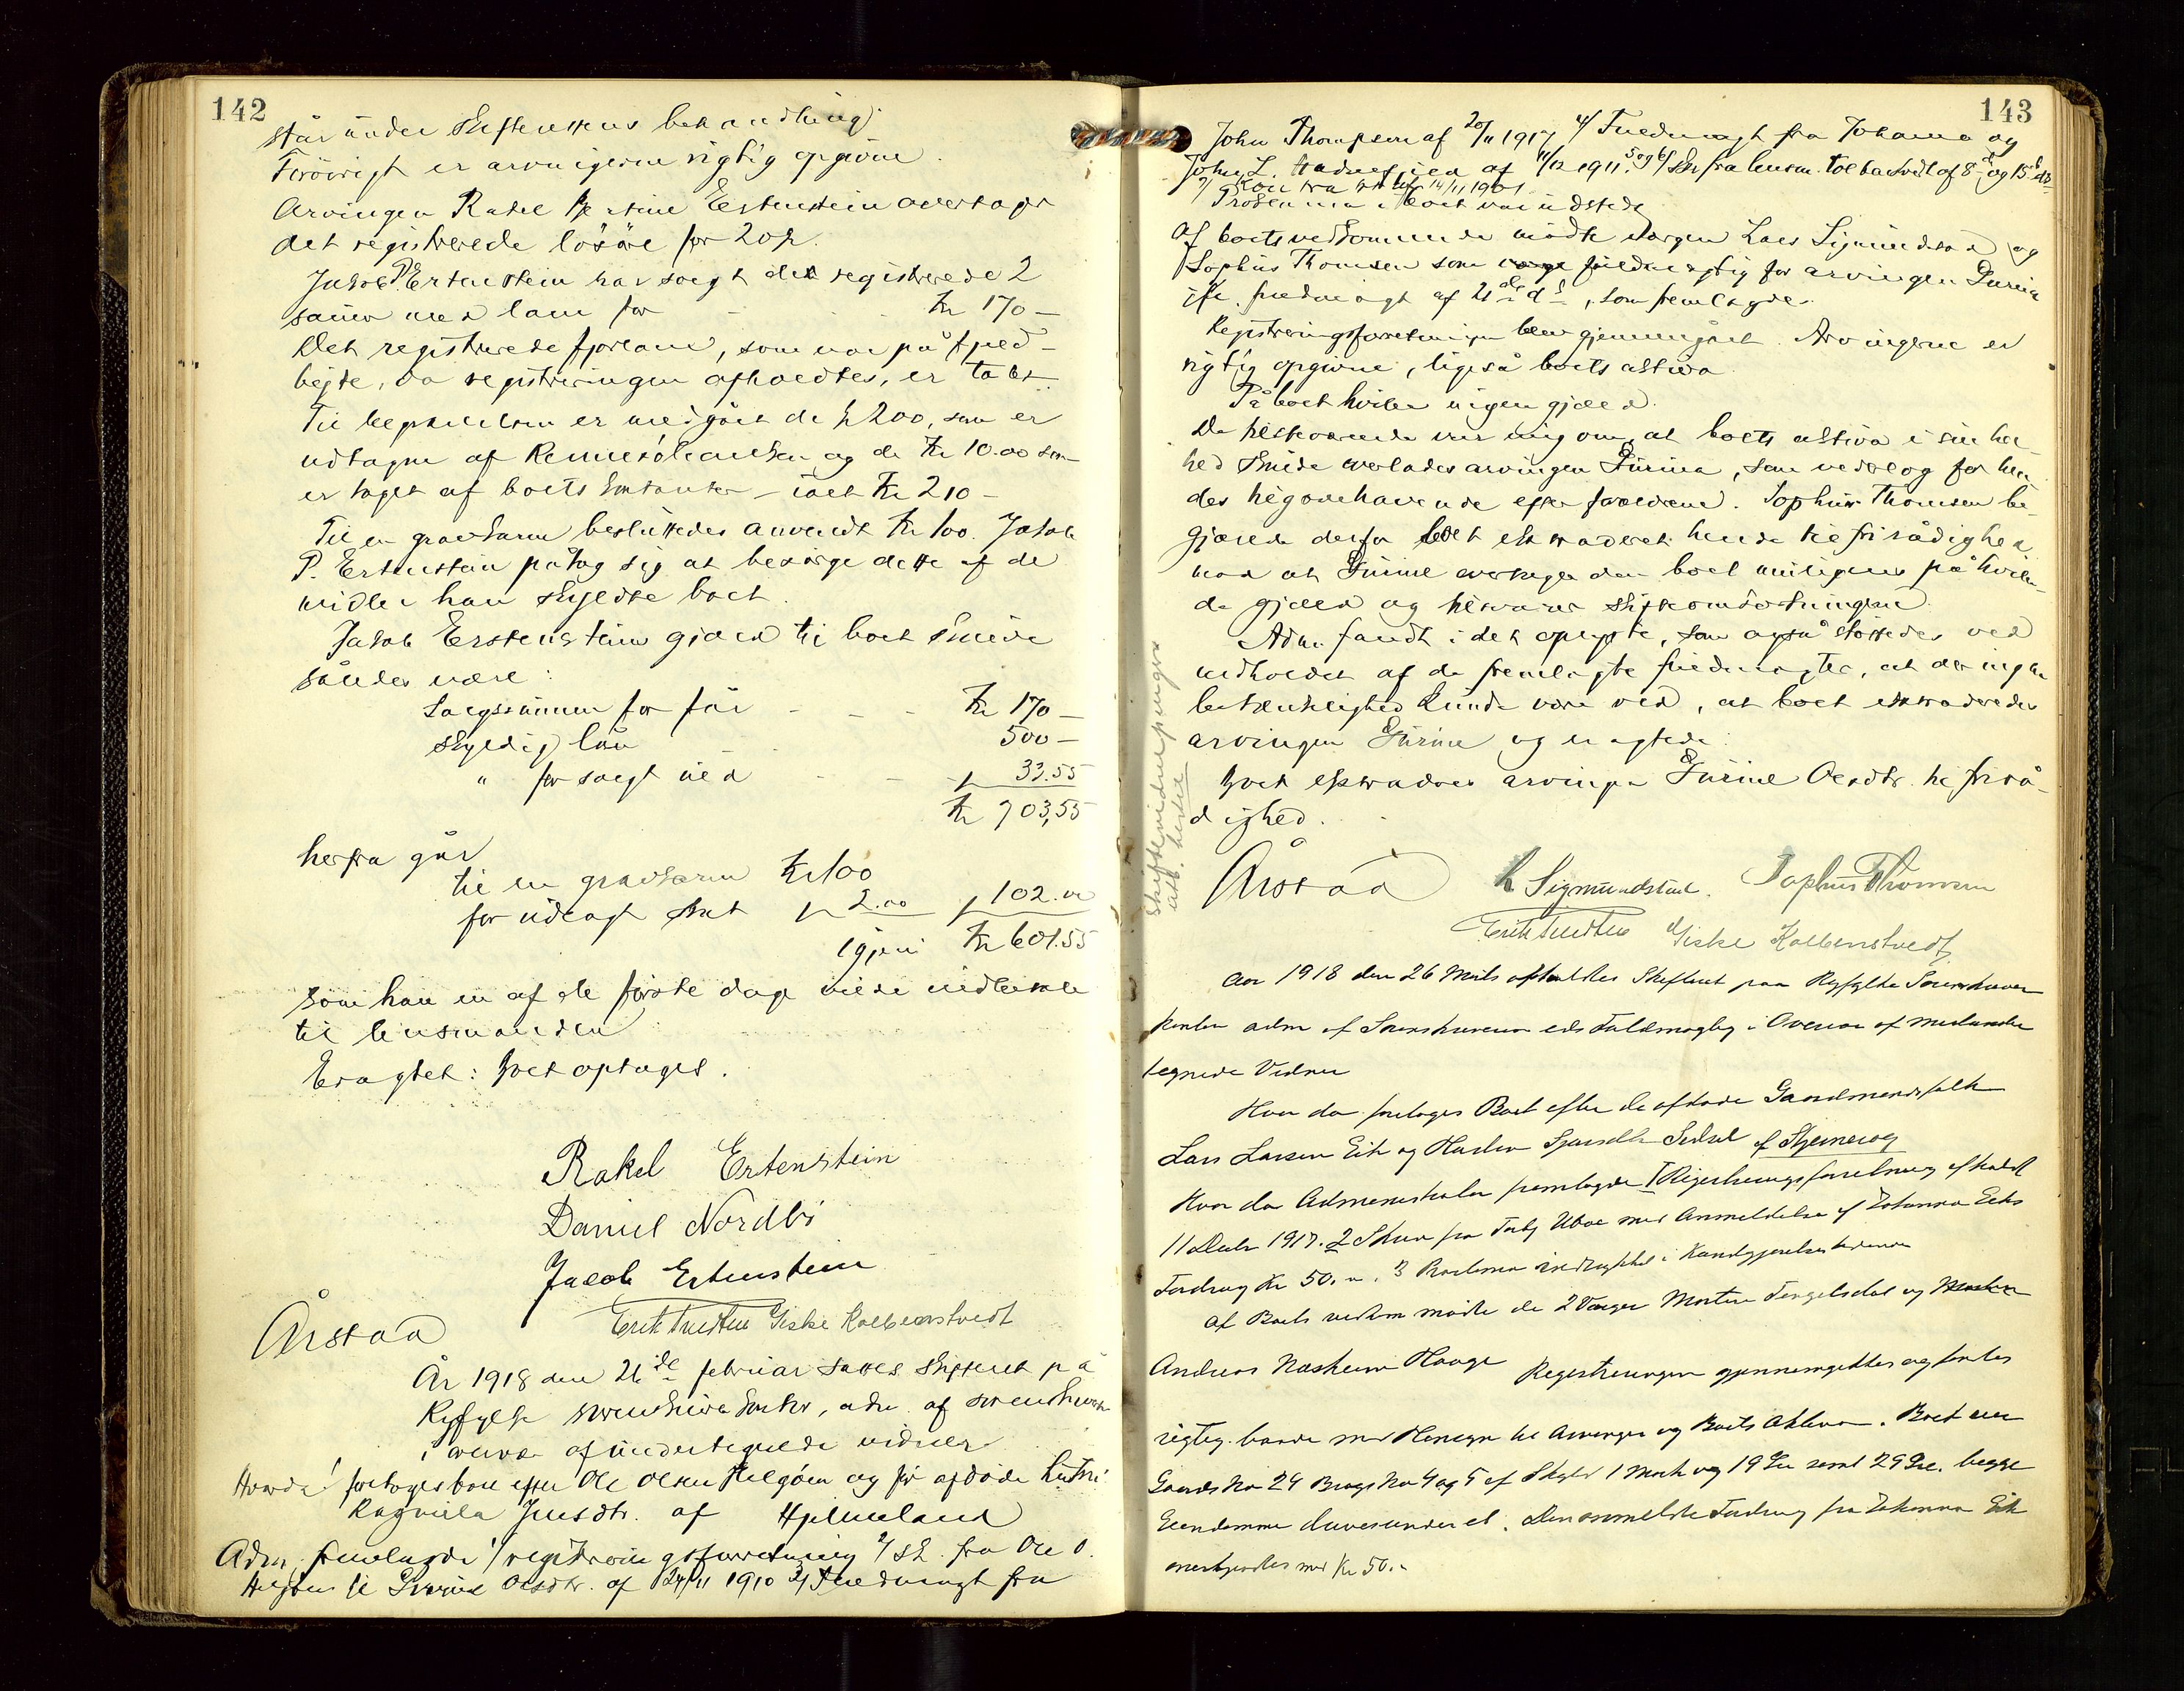 142
står under skifterettens behandling.
Forövrigt er arvingerne rigtig opgivne.
Arvingen Rakel Kristine Ertenstein overtager
det registrerede lösöre for 20 kr.
Jakob P. Ertenstein har solgt de registrerede 2
sauer med lam for - - Kr 170 -
Det registrerede fjorlam, som var på fjeld-
beite, da registreringen afholdtes, er tabt.
Til begravelsen er medgået de kr 200, som er
udtagne af Rennesö banken og de Kr 10.00 som
er taget af boets kontanter - ialt Kr 210 -
Til en gravstein besluttedes anvendt Kr 100. Jakob
P. Ertenstein påtog sig at besörge dette af de
midler han skyldte boet.
Jakob Erstenstein gjæld til boet skulde
således være:
Salgssummen for får - - - Kr 170 -
skyldig lån - - 500 -
" for solgt ved - - - " 33.55
Kr 703,55
herfra går
til en gravstein Kr 100
for udlagt skat " 2.00 " 102.00
igjen Kr 601.55
som han en af de förste dage vilde indbetale
til lensmanden
Eragtet: Boet optages.
Rakel Ertenstein
Daniel Nordbö
Jacob Ertenstein
Årstad Erik Tuedten Giske Kolbenstvedt
År 1918 den 26de februar sattes skifteret på
Ryfylke sorenskriverkontor, adm. af sorenskriveren
i overvær af undertegnede vidner
Hvorda: foretoges boet efter Ole Olsen Helgöen og för afdöde hustru
Ragnilla Jensdtr. af Hjelmeland
Adm. fremlagde 1/ registreringsforretning 2/ sk. fra Ole O.
Helgöen til Gurine Olsdtr. af 24/11 1910 3/ Fuldmagt fra
143
John Thompson af 20/11 1917 4/ Fuldmagt fra Johanna og
John L. af 4/12 1911. 5 og 6/ skr fra lensm. Tolbakvål af 8 og 15 ds
7/ 14/11 1901
Proklama i boet var udstedt
Af boets vedkommende mödte værgen Lars Sigmundstad og
Sophus Thomsen som fuldmægtig for arvingen Gurine
ifl. fuldmagt af 21de ds, som fremlagdes.
Registreringsforretningen blev gjennemgået. Arvingerne er
rigtig opgivne, ligeså boets aktiva
På boet hviler ingen gjæld.
De tilstedeværende var enig om, at boets aktiva i sin hel-
hed skulde overlades arvingen Gurine, som vederlag for hen-
des tilgodehavende efter forældrene. Sophus Thomsen be-
gjærede derfor boet extraderet hende til fri rådighed
mod at Gurine overtager den boet muligens påhvilen-
de gjæld og tilsvarer skifteomkostningerne.
Adm. fandt i det oplyste, som også støttedes ved
indholdet af de fremlagte fuldmagter, at der ingen
betænkelighed kunde være ved, at boet extraderedes
arvingen Gurine og eragtede:
Boet extraderes arvingen Gurine Olesdtr. til fri rå-
dighed.
Årstad L Sigmundstad. Sophus Thomsen
Erik Tuedten Giske Kolbenstvedt
Aar 1918 den 26 Marts afholdtes Skifteret paa Ryfylke Sorenskriver
kontor adm af Sorenskriveren ved Fuldmægtig i Overvær af medunder
tegnede Vidner
Hvor da foretoges Boet efter de afdøde Gaardmandsfolk
Lars Larsen Eik og Hustru Sjursdtr Seksel af Skjerneveg
Hvor da Administrator fremlagde 1 Registreringsforretning afholdt
11 Decbr 1917. 2 Skriv fra Torbj Uboe med Anmeldelse af Johanna Eiks
Fordring Kr 50.00. 3 Proklama indrykket i Kundgjørelsestidende
Af Boets vedkom mødte de 2 Værger Morten Tengelsdal og
Andreas Naskeim Hauge Registreringen gjennemgikkes og fandtes
rigtig baade med Hensyn til Arvinger og Boets Aktiva. Boet eier
Gaards No 24 Brugs No 4 og 5 af Skyld 1 Mark og 19 Øre samt 29 Øre. begge
Eiendomme . Den anmeldte Fordring fra Johanna Eik
anerkjendtes med Kr 50.-